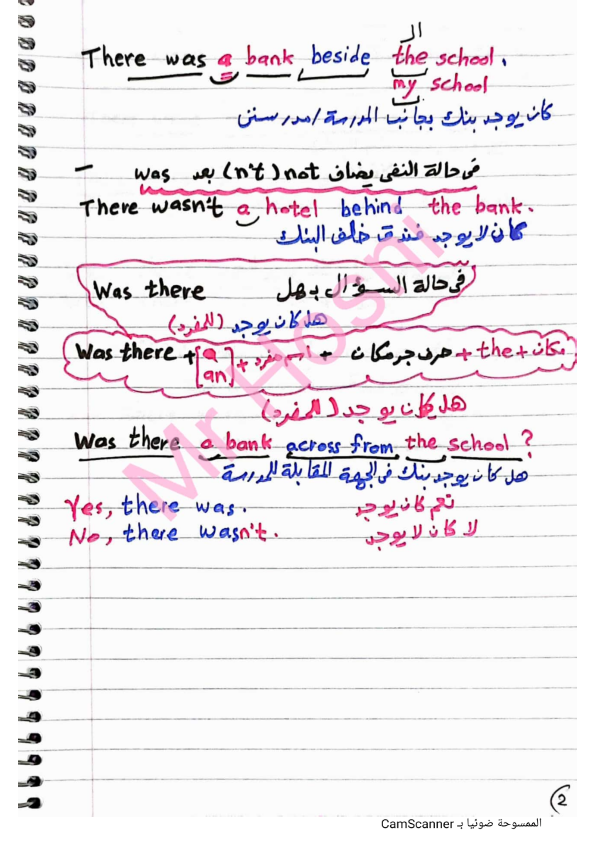 الـ
There was a bank beside the school.
my school
كان يوجد بنك بجانب المدرسة/مدرستى
– فى حالة النفى يضاف not (n't) بعد was
There wasn't a hotel behind the bank.
كان لا يوجد فندق خلف البنك
Was there فى حالة السؤال بـ هل
هل كان يوجد (للمفرد)
Was there + [a an] + اسم مفرد + حرف جر مكان + the + مكان
هل كان يوجد (للمفرد)
Was there a bank across from the school?
هل كان يوجد بنك فى الجهة المقابلة للمدرسة
Yes, there was. نعم كان يوجد
No, there wasn't. لا كان لا يوجد
Mr Hosni
2
الممسوحة ضوئيا بـ CamScanner